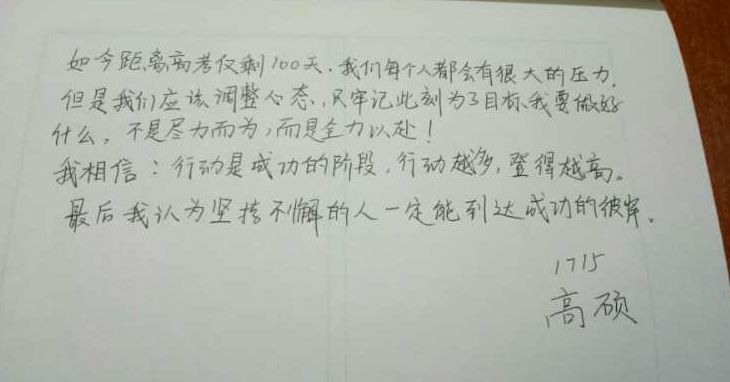 如今距离高考仅剩100天，我们每个人都会有很大的压力，
但是我们应该调整心态，只牢记此刻为了目标我要做好
什么，不是尽力而为，而是全力以赴！
我相信：行动是成功的阶段，行动越多，登得越高。
最后我认为坚持不懈的人一定能到达成功的彼岸。
1715
高硕